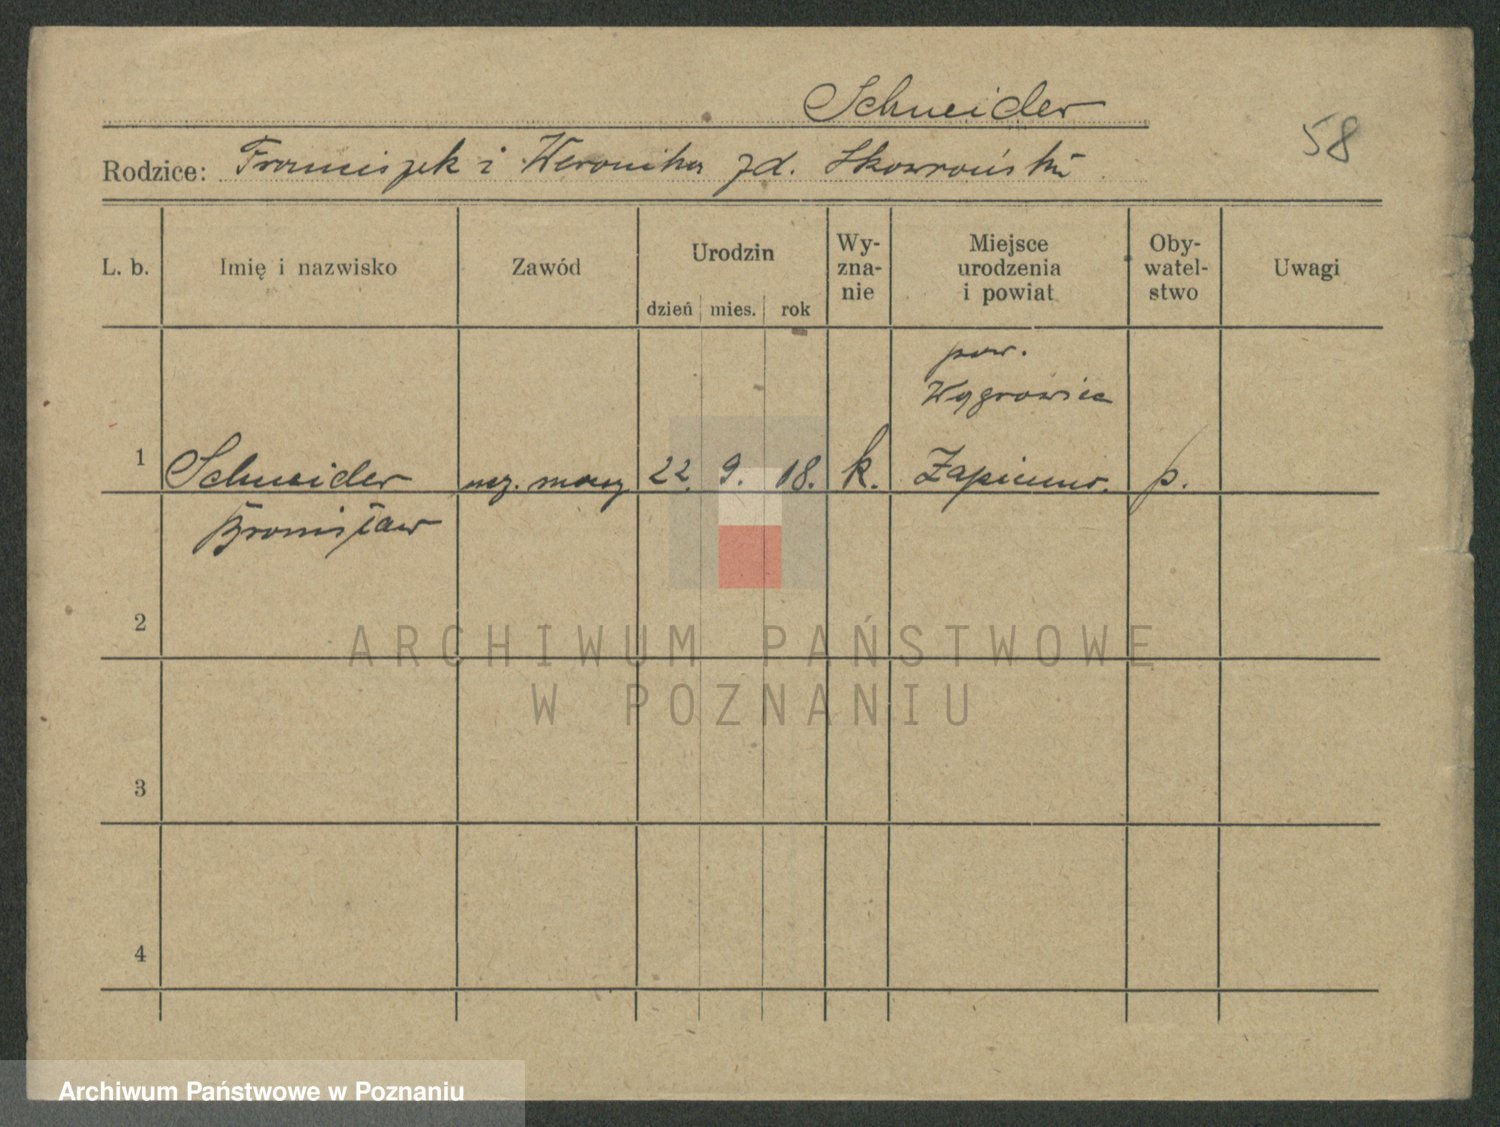 Schneider
58
Rodzice: Franciszek i Weronika zd. Skowrońska
L. b. Imię i nazwisko Zawód Urodzin dzień mies. rok Wy-zna-nie Miejsce urodzenia i powiat Oby-watel-stwo Uwagi
pow.
Wągrowiec
1 Schneider 22. 9. 18. k. p.
Bronisław
2
3
4
ARCHIWUM PAŃSTWOWE
W POZNANIU
Archiwum Państwowe w Poznaniu